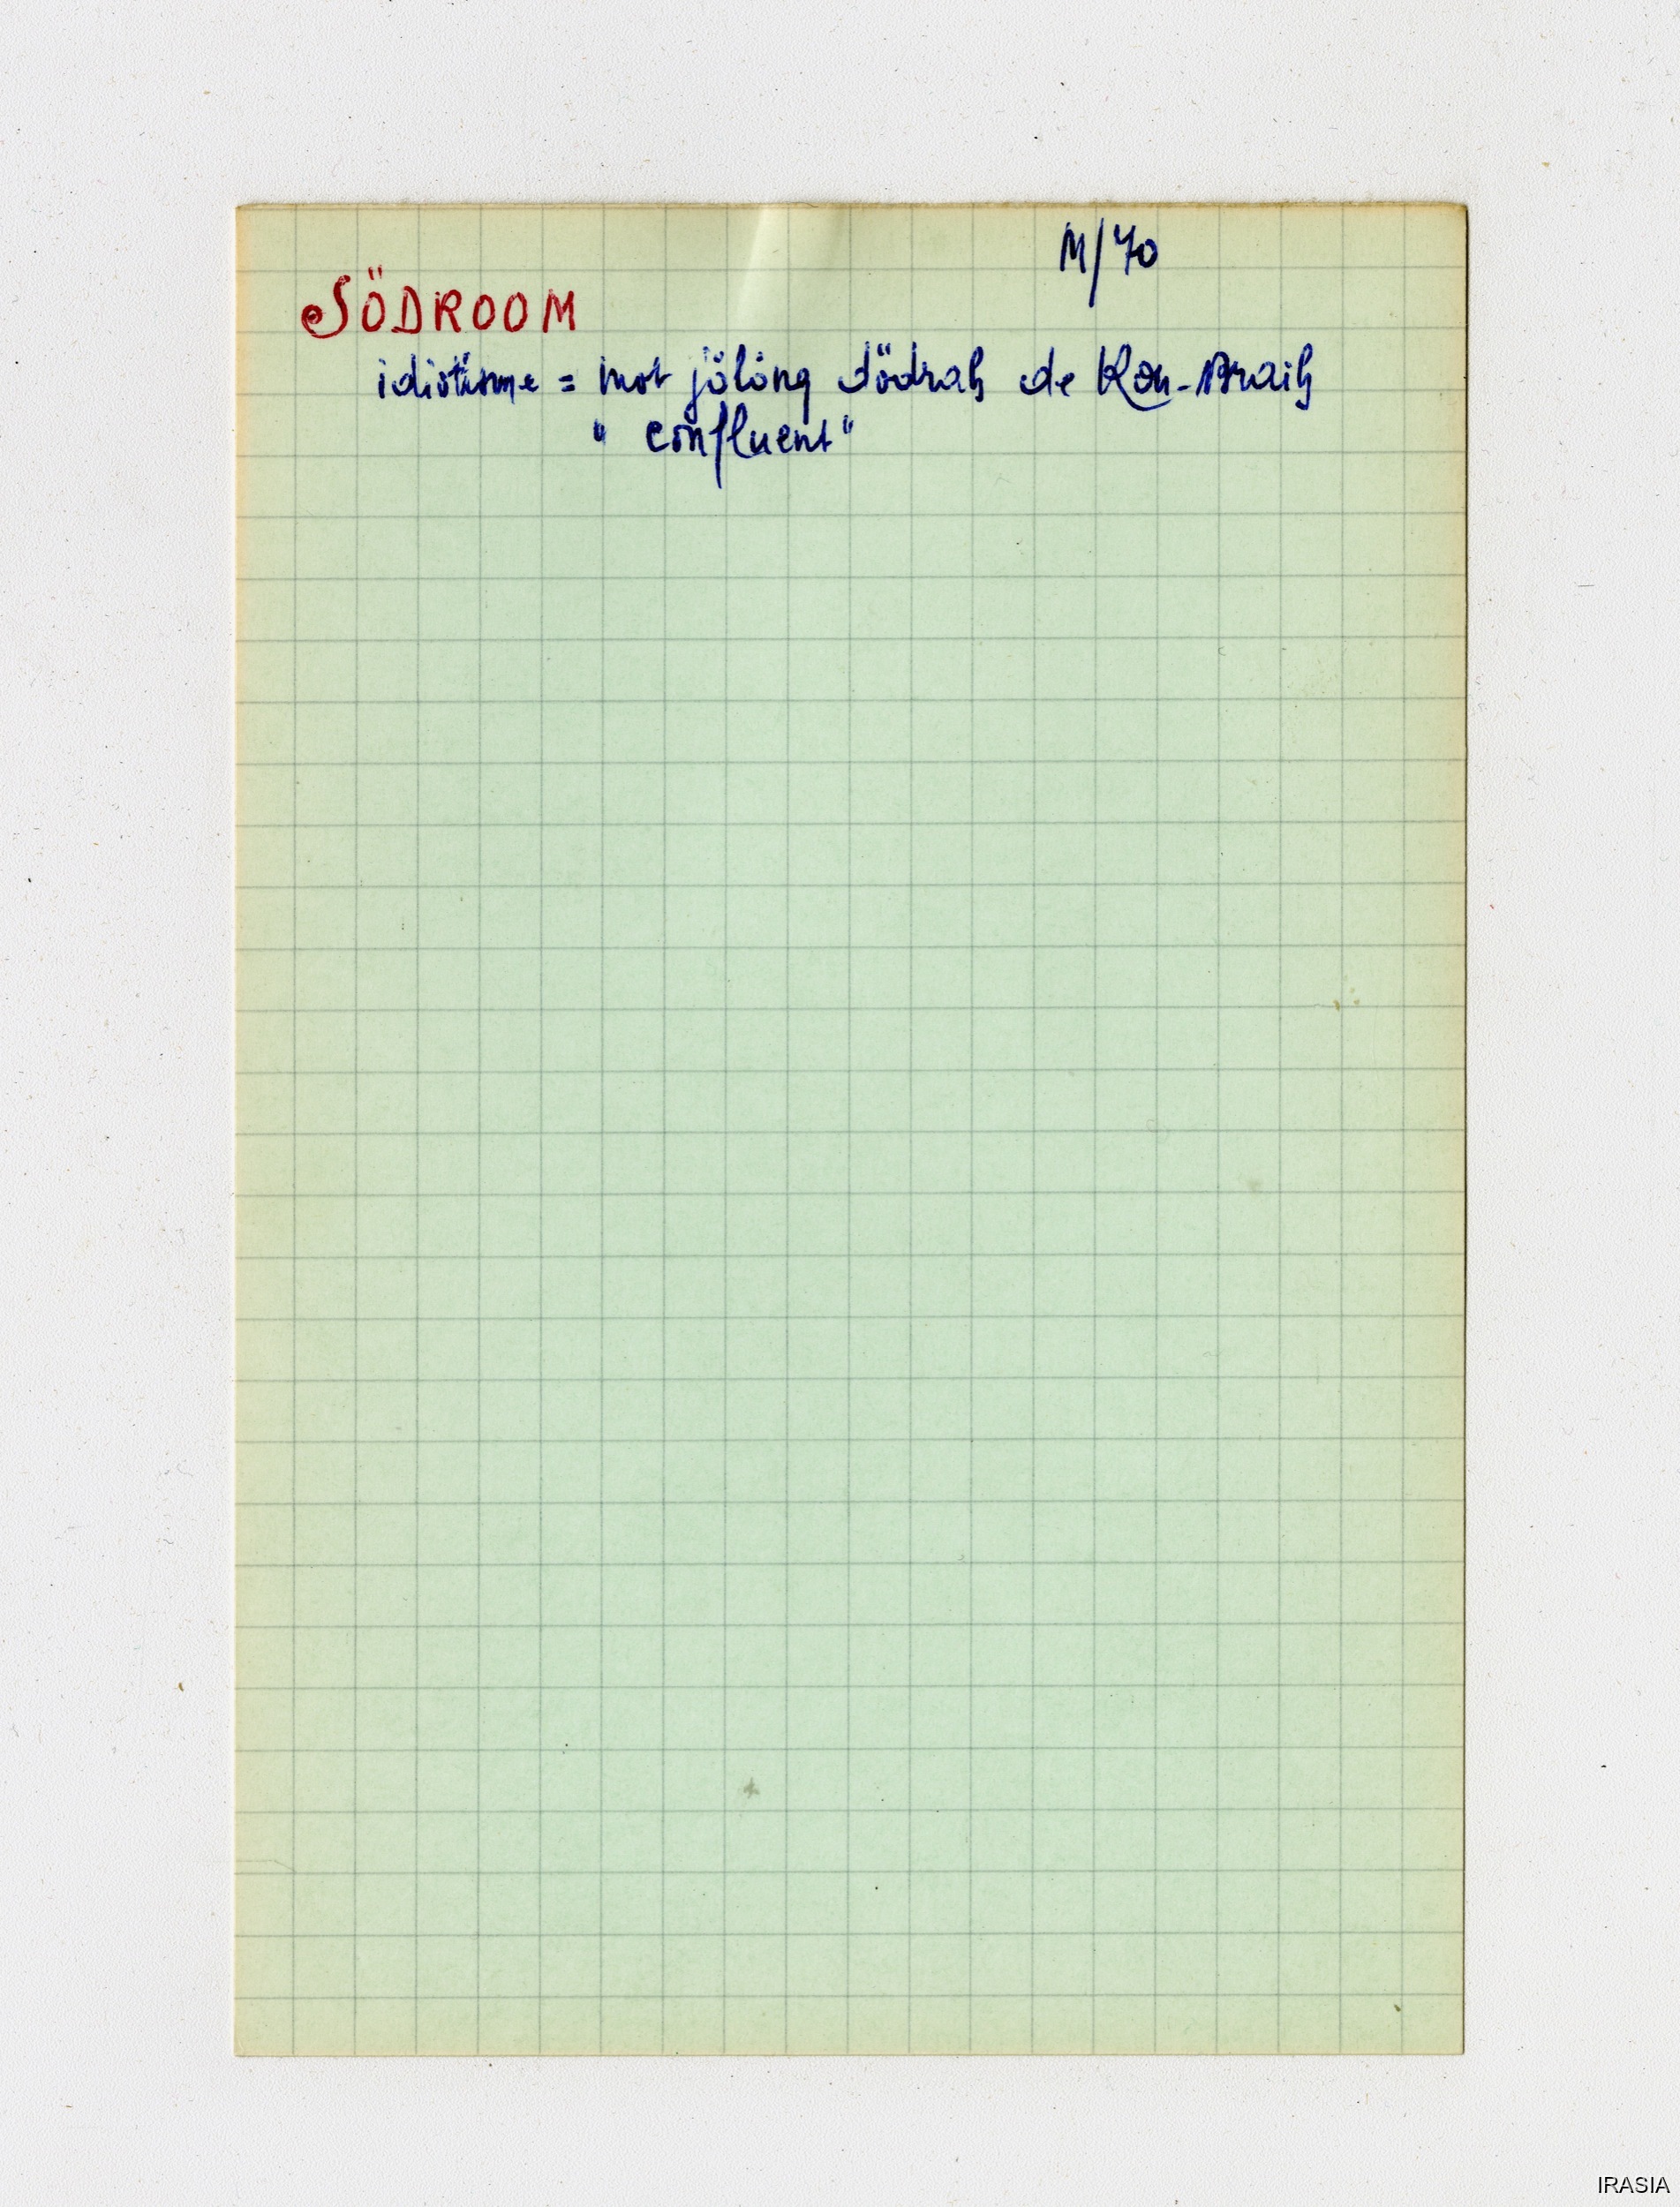 M/70
SÖDROOM
idiotisme = mot jölöng södrah de Kon-Braih
" confluent "
IRASIA